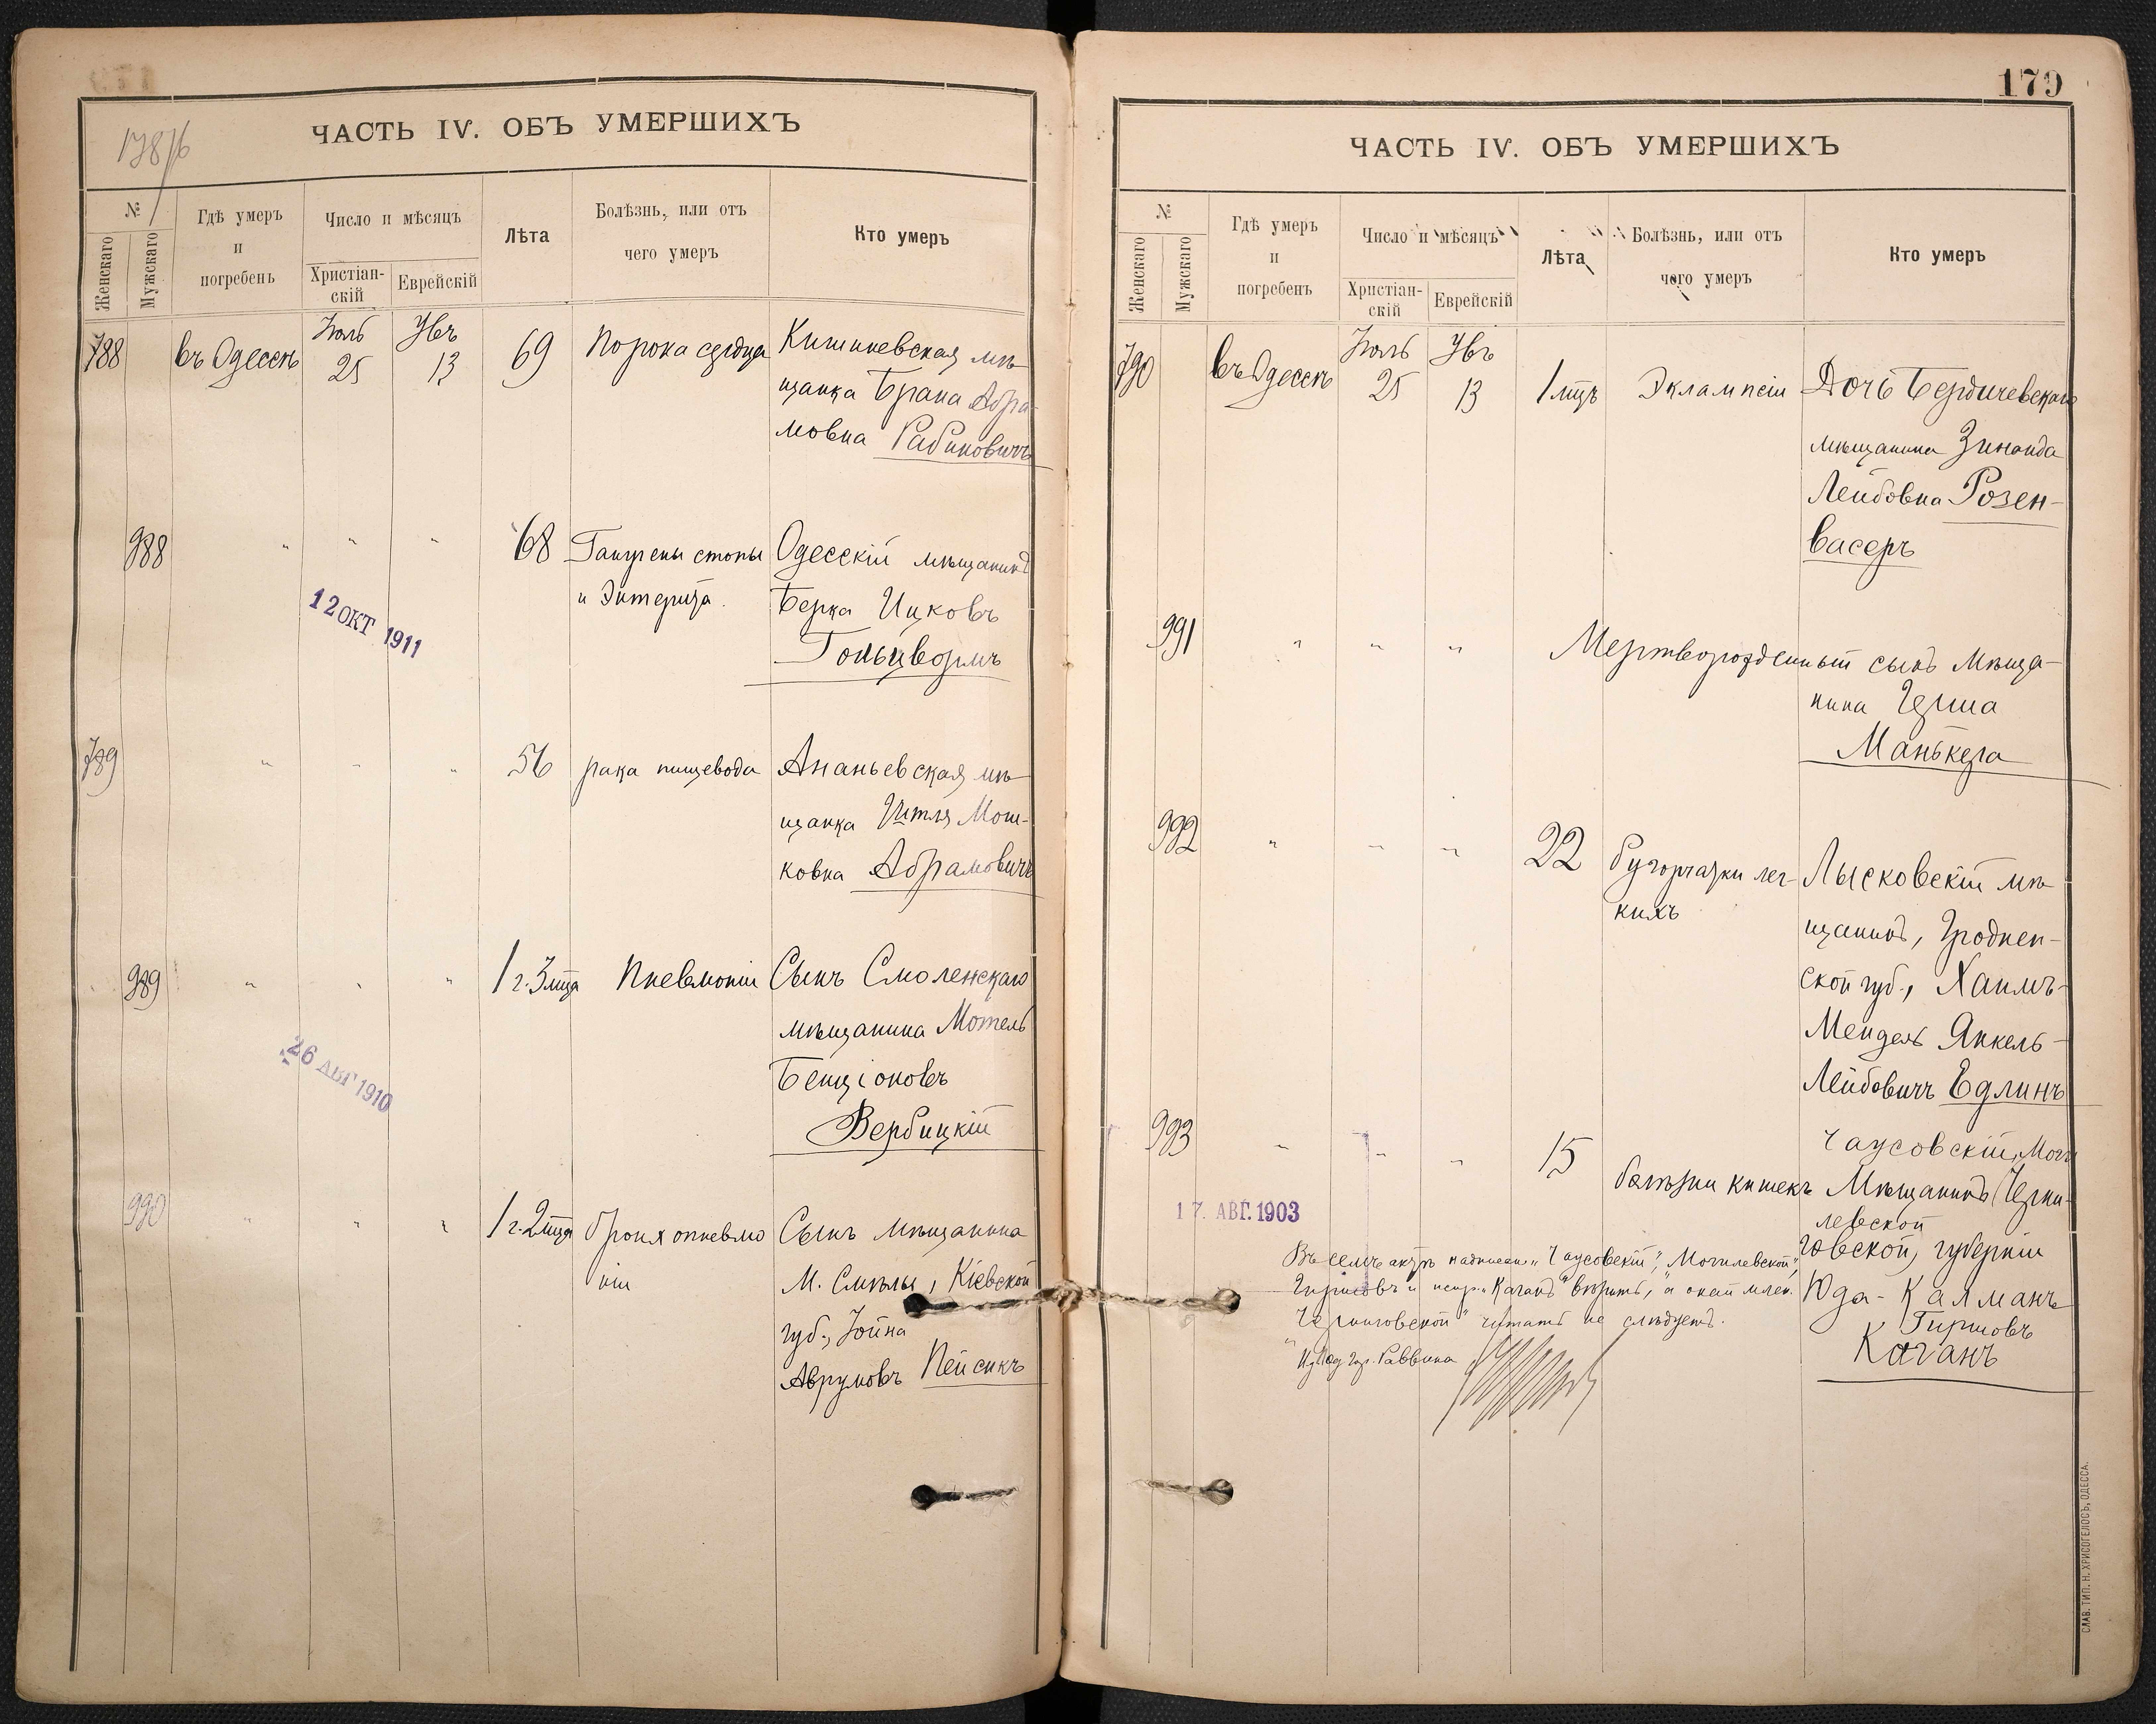 178/16
ЧАСТЬ IV. ОБЪ УМЕРШИХЪ
№
Женскаго
Мужскаго
Гдѣ умеръ
и
погребенъ
Число и мѣсяцъ
Христіан-
скій
Еврейскій
Лѣта
Болѣзнь, или отъ
чего умеръ
Кто умеръ
788
въ Одессѣ
Іюль
25
Увъ
13
69
Порока сердца
Кишиневская мѣ-
щанка Брана Абра-
мовна Рабиновичъ
988
" " "
68
Гангрены стопы
и Энтерита.
Одесскій мѣщанинъ
Берка Ицковъ
Гольцвормъ
12 ОКТ 1911
789
" " "
56
рака пищевода
Ананьевская мѣ-
щанка Итля Мош-
ковна Абрамовичъ
989
" " "
1 г. 3 мца
Пневмоніи
Сынъ Смоленскаго
мѣщанина Мотель
Бенціоновъ
Вербицкій
26 АВГ 1910
990
" " "
1 г. 2 мца
бронхопневмо
ніи
Сынъ мѣщанина
М. Смѣлы, Кіевской
губ., Іойна
Аврумовъ Пейсикъ
179
ЧАСТЬ IV. ОБЪ УМЕРШИХЪ
№
Женскаго
Мужскаго
Гдѣ умеръ
и
погребенъ
Число и мѣсяцъ
Христіан-
скій
Еврейскій
Лѣта
Болѣзнь, или отъ
чего умеръ
Кто умеръ
790
въ Одессѣ
Іюль
25
Увъ
13
1 мцъ
Эклампсіи
Дочь Бердичевскаго
мѣщанина Зинаида
Лейбовна Розен-
васеръ
991
" " "
Мертворожденный сынъ мѣща-
нина Герша
Манькера
992
" " "
22
бугорчатки лег-
кихъ
Лысковскій мѣ-
щанинъ, Гроднен-
ской губ., Хаимъ-
Мендель Янкель-
Лейбовичъ Едлинъ
993
" " "
15
болѣзни кишекъ
Чаусовскій, Моги
Мѣщанинъ Черни-
левской
говской, губерніи
Юда-Калманъ
Гиршовъ
Каганъ
17. АВГ. 1903
Въ семъ актѣ надписан. "Чаусовскій", "Могилевской",
"Гиршовъ" и испр. "Каганъ" вѣрить, а
"Черниговской" читать не слѣдуетъ.
Раввина
СЛАВ. ТИП. Н. ХРИСОГЕЛОСЪ, ОДЕССА.